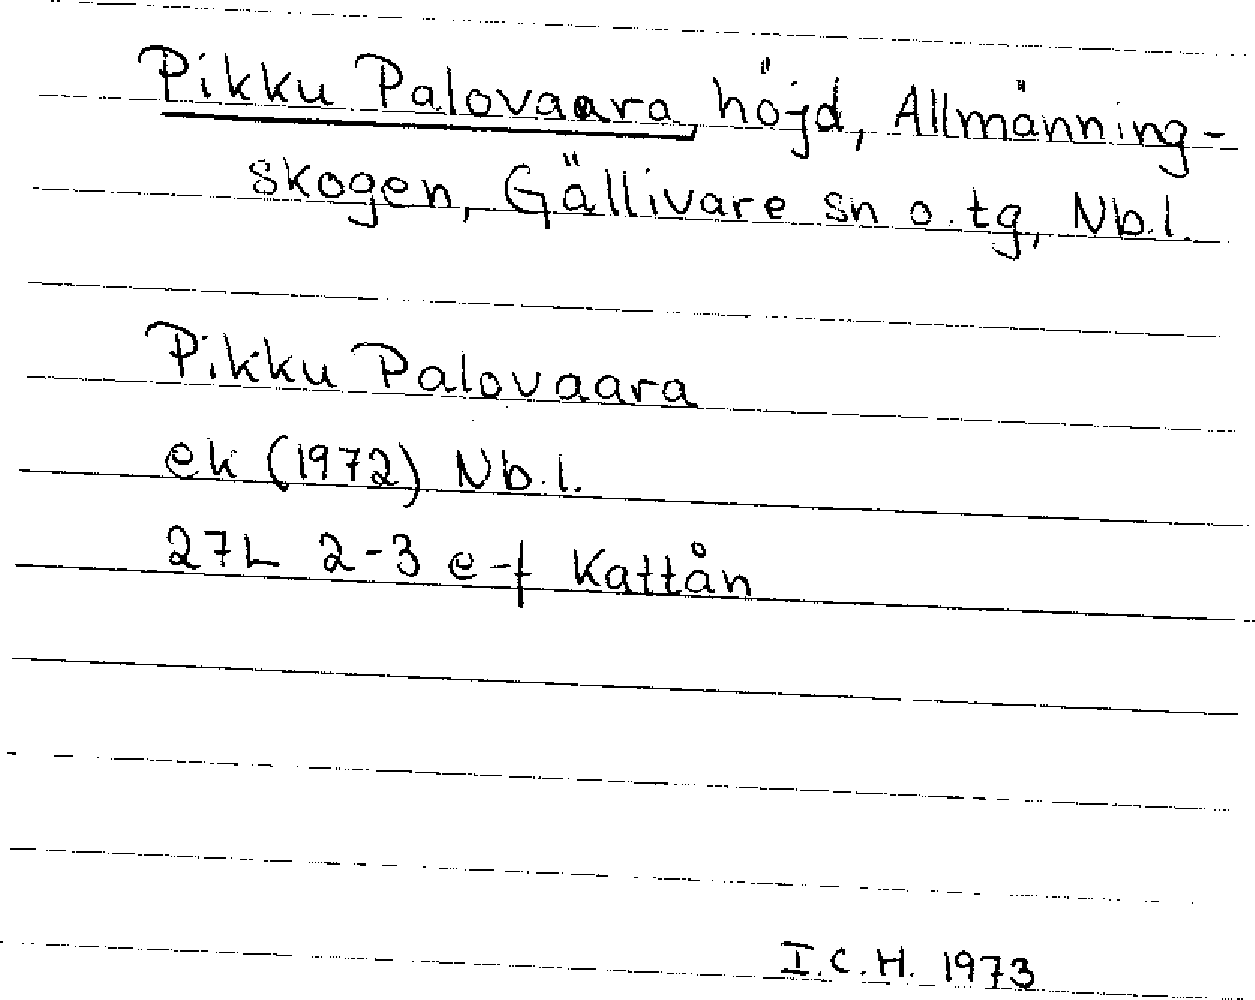 Pikku Palovaara, höjd, Allmänning-
skogen, Gällivare sn o. tg, Nb.l.
Pikku Palovaara
ek (1972) Nb.l.
27L 2-3 e-f Kattån
I.C.H. 1973